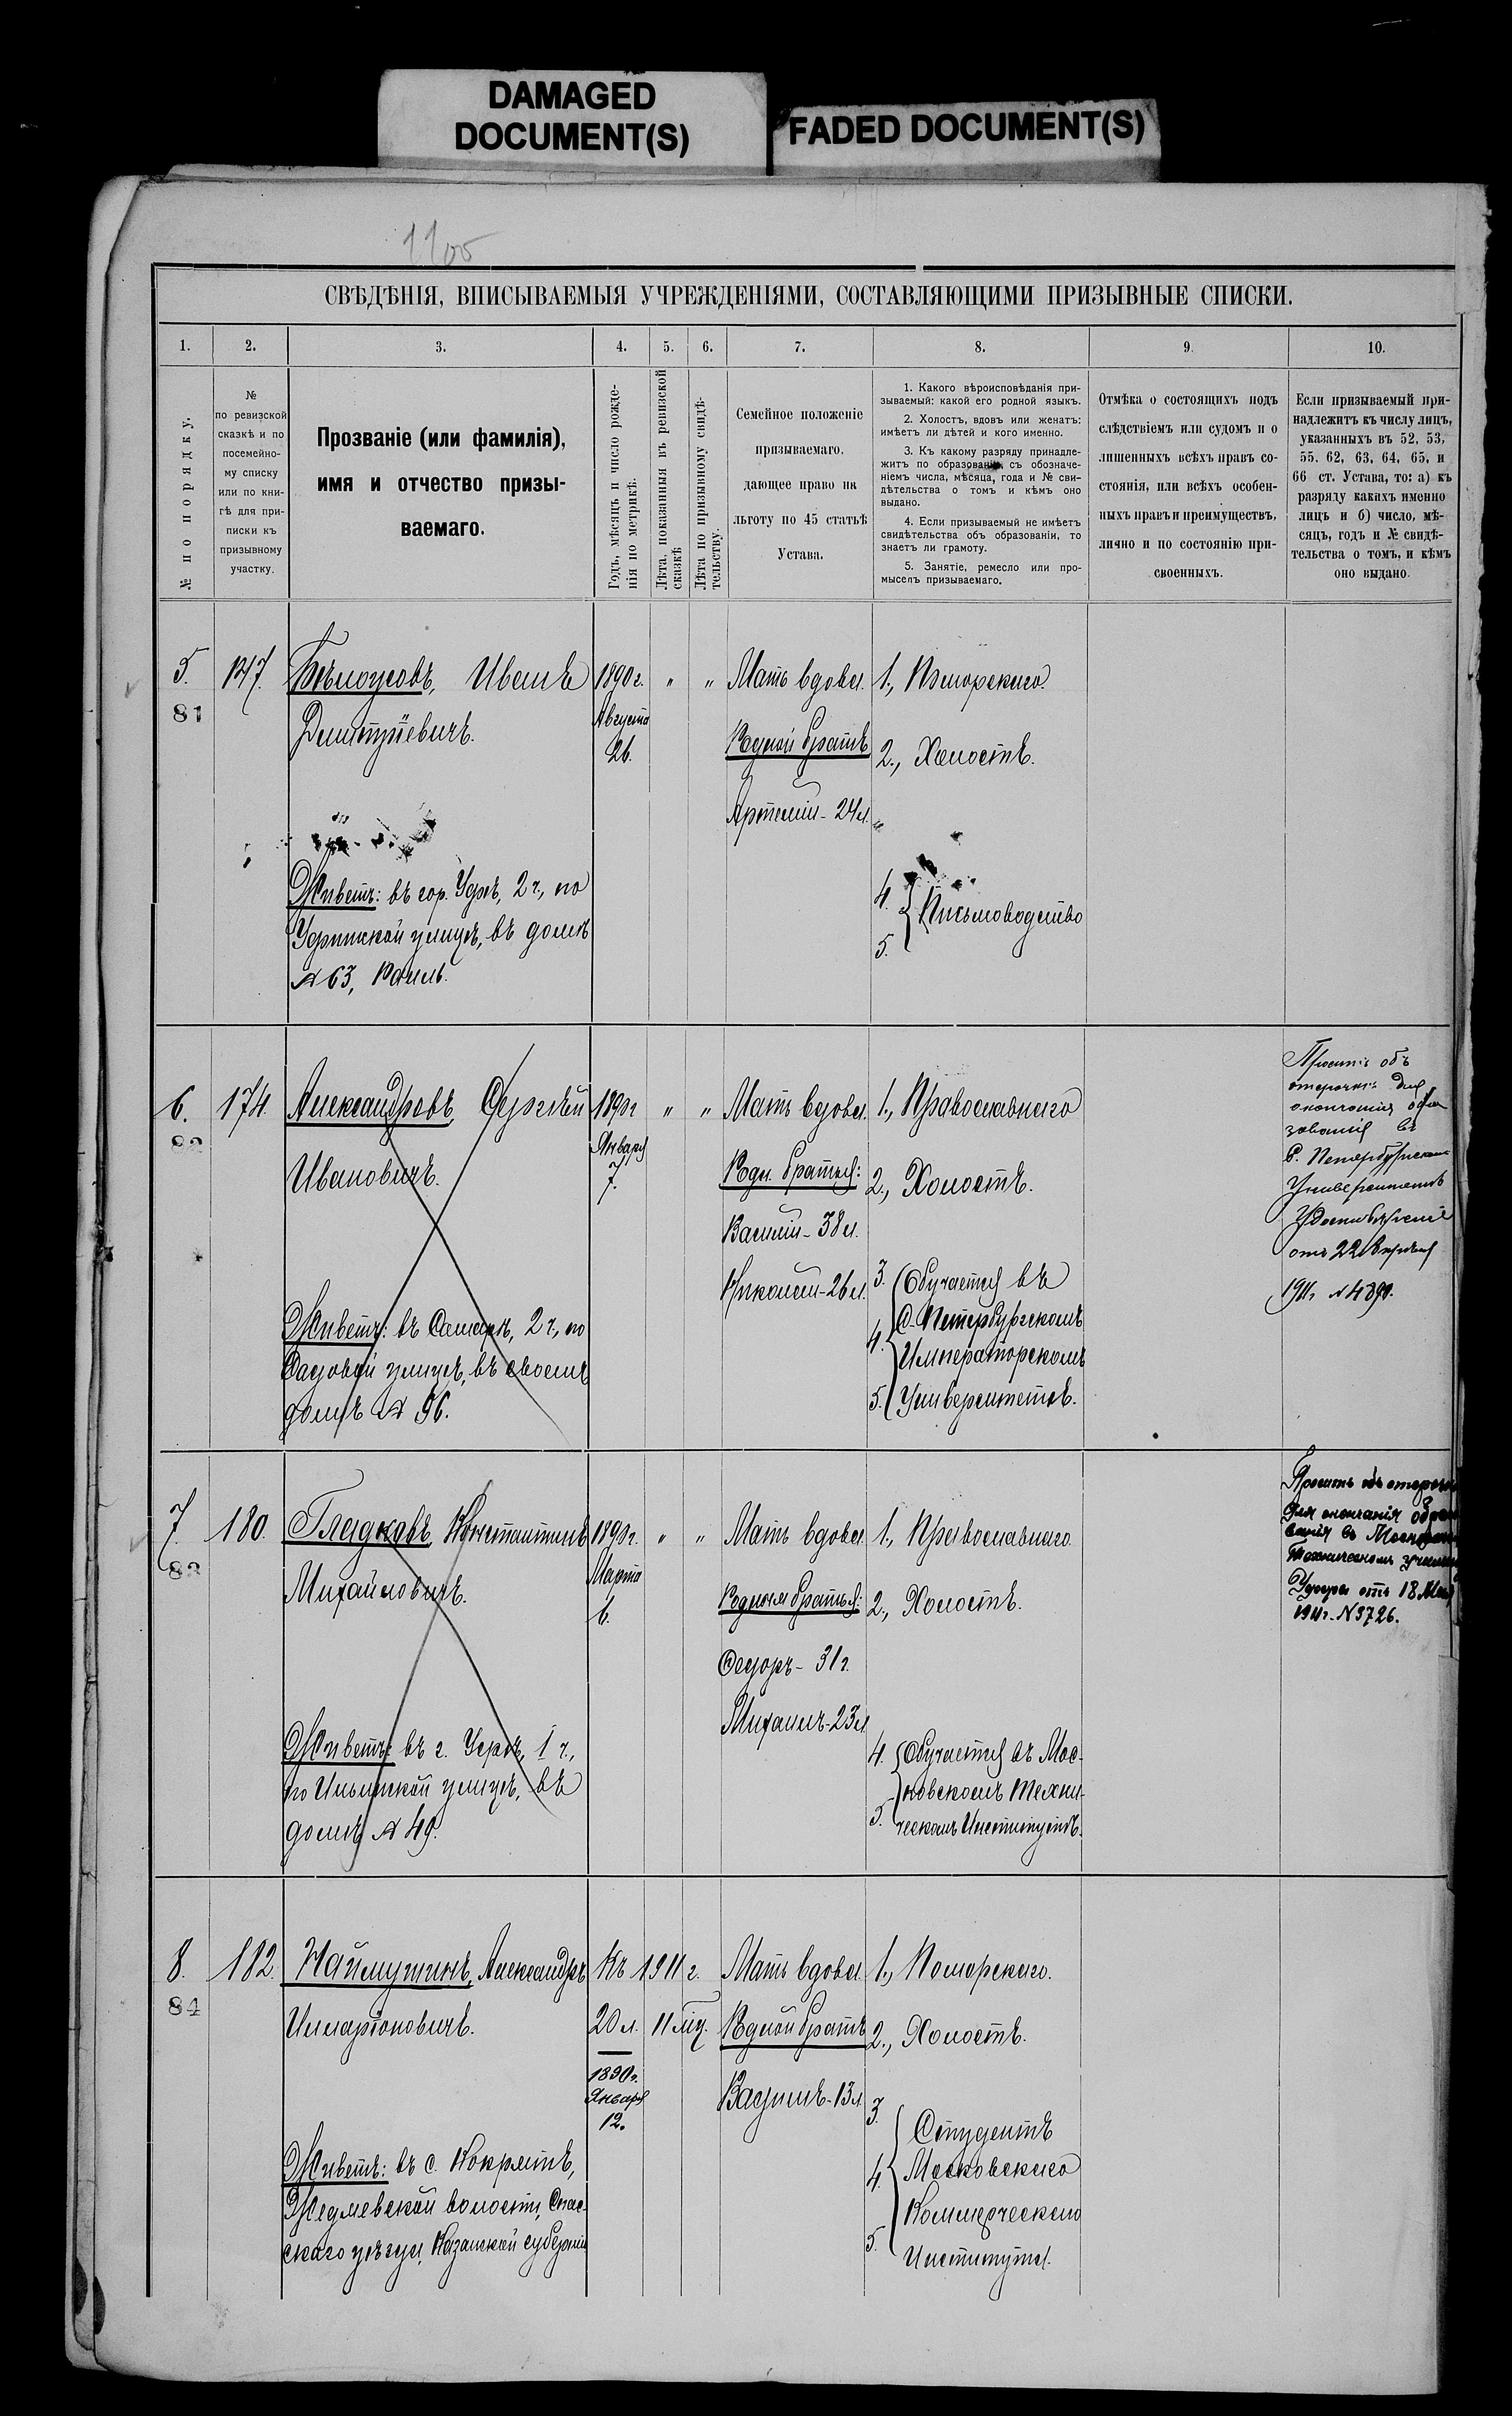 DAMAGED
DOCUMENT(S)
FADED DOCUMENT(S)
1100
СВѢДѢНІЯ, ВПИСЫВАЕМЫЯ УЧРЕЖДЕНІЯМИ, СОСТАВЛЯЮЩИМИ ПРИЗЫВНЫЕ СПИСКИ.
1. 2. 3. 4. 5. 6. 7. 8. 9. 10.
№ по порядку.
№
по ревизской
сказкѣ и по
посемейно-
му списку
или по кни-
гѣ для при-
писки къ
призывному
участку.
Прозваніе (или фамилія),
имя и отчество призы-
ваемаго.
Годъ, мѣсяцъ и число рожде-
нія по метрикѣ.
Лѣта, показанныя въ ревизской
сказкѣ
Лѣта по призывному свидѣ-
тельству.
Семейное положеніе
призываемаго,
дающее право на
льготу по 45 статьѣ
Устава.
1. Какого вѣроисповѣданія при-
зываемый: какой его родной языкъ.
2. Холостъ, вдовъ или женатъ:
имѣетъ ли дѣтей и кого именно.
3. Къ какому разряду принадле-
житъ по образованію, съ обозначе-
ніемъ числа, мѣсяца, года и № сви-
дѣтельства о томъ и кѣмъ оно
выдано.
4. Если призываемый не имѣетъ
свидѣтельства объ образованіи, то
знаетъ ли грамоту.
5. Занятіе, ремесло или про-
мыселъ призываемаго.
Отмѣка о состоящихъ подъ
слѣдствіемъ или судомъ и о
лишенныхъ всѣхъ правъ со-
стоянія, или всѣхъ особен-
ныхъ правъ и преимуществъ,
лично и по состоянію при-
своенныхъ.
Если призываемый при-
надлежитъ къ числу лицъ,
указанныхъ въ 52, 53,
55, 62, 63, 64, 65, и
66 ст. Устава, то: а) къ
разряду какихъ именно
лицъ и б) число, мѣ-
сяцъ, годъ и № свидѣ-
тельства о томъ, и кѣмъ
оно выдано.
5.
81
147.
Бѣлоусовъ, Иванъ
Дмитріевичъ.
Живетъ: въ гор. Уфѣ, 2 ч., по
Уфимской улицѣ, въ домѣ
№ 63,
1890 г.
Августа
26.
" "
Мать вдова.
Родной братъ
Артемій - 24 л.
1., Поморскаго.
2., Холостъ.
4.
5.
Письмоводство
6.
82
174.
Александровъ, Сергѣй
Ивановичъ.
Живетъ: въ Самарѣ, 2 ч., по
Садовой улицѣ, въ своемъ
домѣ № 96.
1890 г
Января
7.
" "
Мать вдова.
Родн. братья:
Василій - 38 л.
Николай - 26 л.
1., Православнаго
2., Холостъ.
3.
4.
5.
Обучается въ
С.-Петербургскомъ
Императорскомъ
Университетѣ.
Проситъ объ
отсрочкѣ для
окончанія обра
зованія въ
С. Петербургском
Университетѣ
Удостовѣреніе
отъ 22 Апрѣля
1911 г № 4890.
7.
83
180.
Гладковъ, Константинъ
Михайловичъ.
Живетъ: въ г. Уфѣ, 1 ч.,
по Ильинской улицѣ, въ
домѣ № 49.
1890 г.
Марта
6.
" "
Мать вдова.
Родные братья:
Федоръ - 31 г.
Михаилъ - 23 л
1., Православнаго.
2., Холостъ.
4.
5.
Обучается въ Мос-
ковскомъ Техни-
ческомъ Институтѣ.
Проситъ объ отсрочк
для окончанія образ
ванія въ Московском
Техническом училищ
отъ 18 Мая
1911 г. № 3726.
8.
84
182.
Наймушинъ, Александръ
Илларіоновичъ.
Живетъ: въ с. Кокрятѣ,
Жедяевской волости, Спас-
скаго уѣзда, Казанской губерніи
Къ 1911 г.
20 л. 11 мц.
1890 г.
Января
12.
Мать вдова.
Родной братъ
Вадимъ - 13 л.
1., Поморскаго.
2., Холостъ.
3.
4.
5.
Студентъ
Московскаго
Коммерческаго
Института.